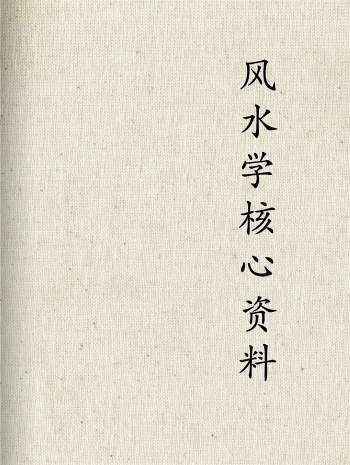 风水学核心资料